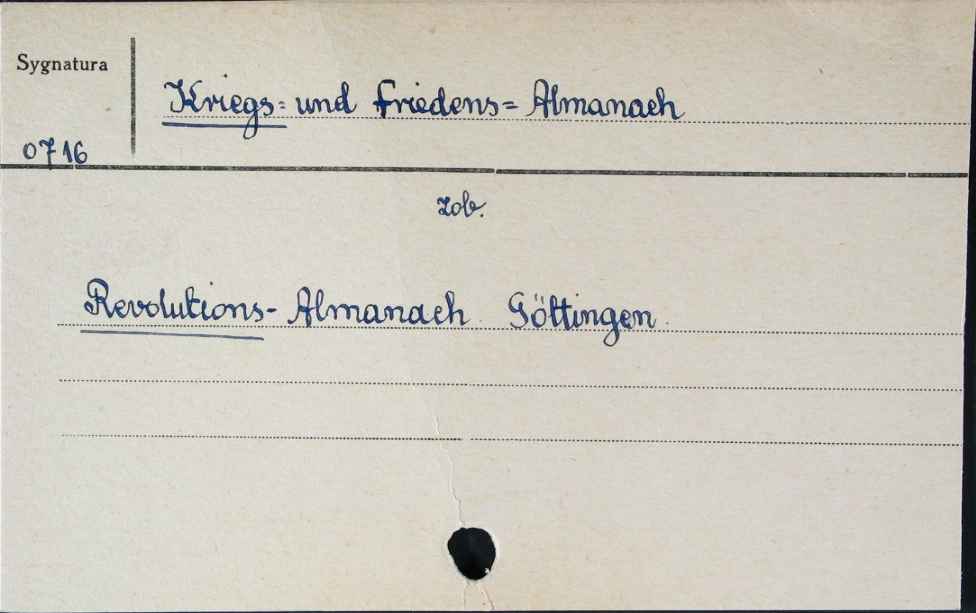 Sygnatura
Kriegs= und Friedens= Almanach
0716
zob.
Revolutions- Almanach Göttingen.